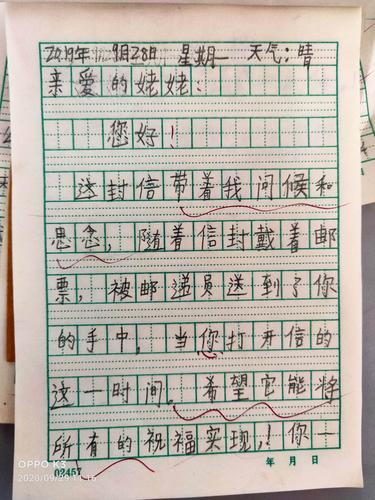 2019年 9月28日 星期一 天气：晴
亲爱的姥姥：
您好！
这封信带着我问候和
思念，随着信封戴着邮
票，被邮递员送到了你
的手中，当你打开信的
这一时间。希望它能将
所有的祝福实现，！你一
02457
年 月 日
OPPO K3
2020/09/29 11:16